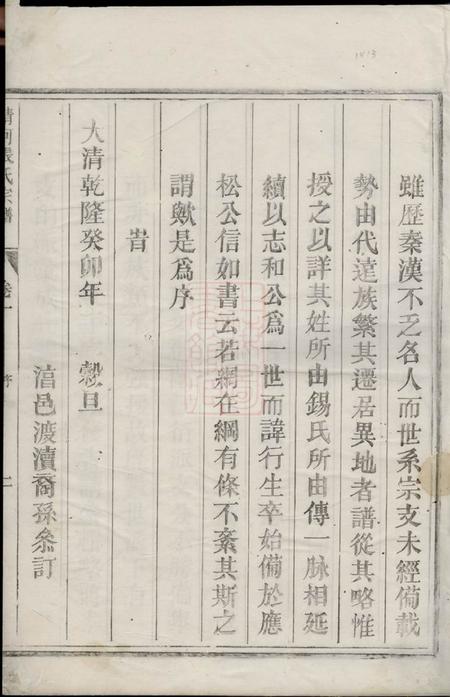 雖歷秦漢不乏名人而世系宗支未經備載
勢由代遠族繁其遷居異地者譜從其略惟
授之以詳其姓所由錫氏所由傳一脉相延
續以志和公爲一世而諱行生卒始備於應
松公信如書云若網在綱有條不紊其斯之
謂歟是爲序
旹
大清乾隆癸卯年 穀旦
渡瀆裔孫叅訂
清河張氏宗譜 卷一 序 二
1413